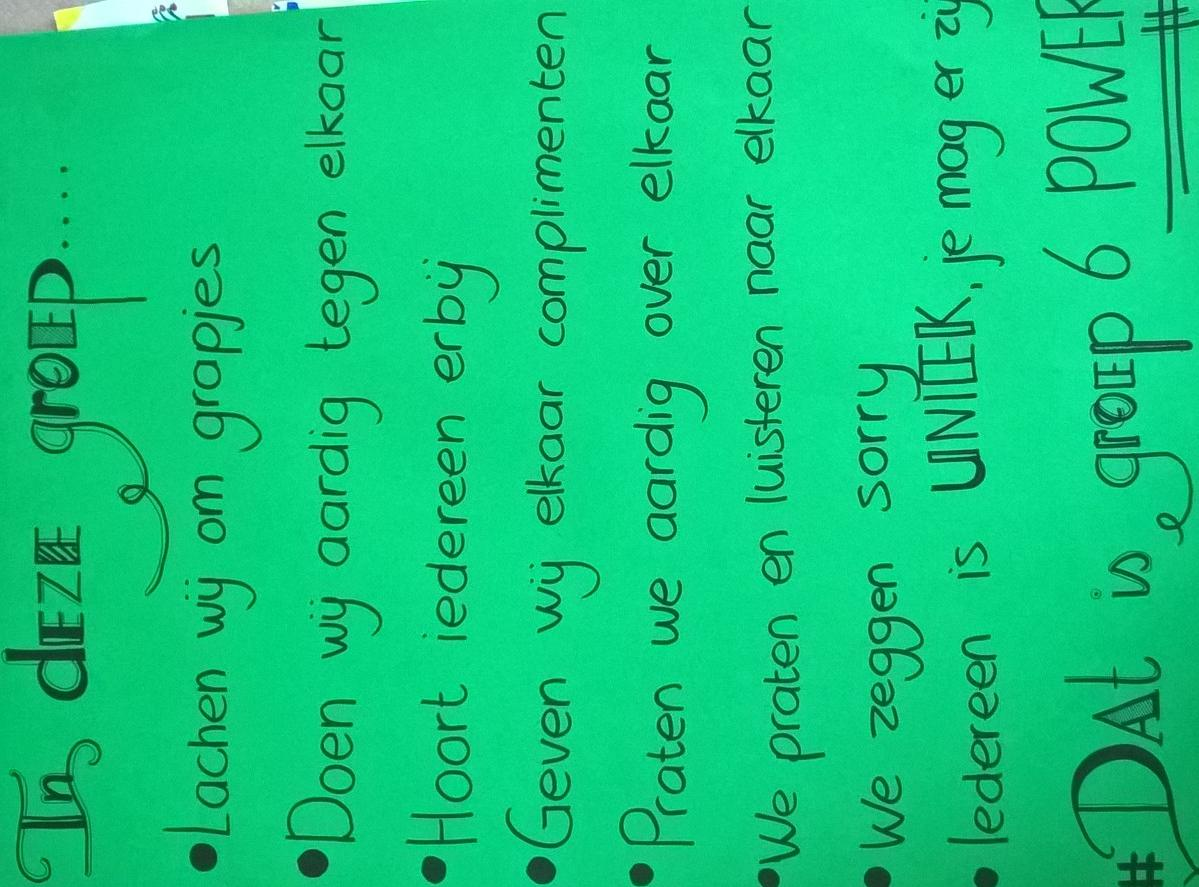 In deze groep....
• Lachen wij om grapjes
• Doen wij aardig tegen elkaar
• Hoort iedereen erbij
• Geven wij elkaar complimenten
• Praten we aardig over elkaar
• We praten en luisteren naar elkaar
• We zeggen sorry
• Iedereen is UNIEK, je mag er zij
# DAt is groep 6 POWER #